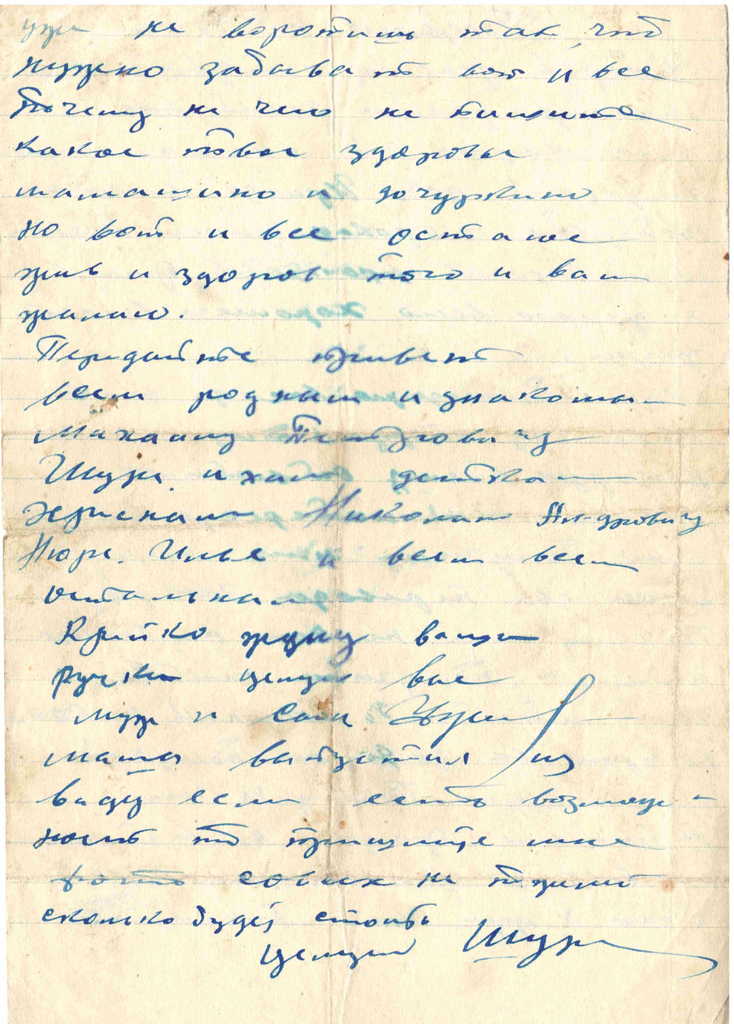 уже не воротишь так, что
нужно забыват вот и все
почему не чего не пишите
какое твое здоровье
мамашино и дочуркино
но вот и все остаюсь
жив и здоров того и вам
желаю.
Передайте привет
всем родным и знакомы
Михаилу
Шуре и хам деткам
Николаю Андровичу
Нюре, Илье и всем всем
остальным
Крепко жму ваши
ручки целую вас
муж и сын Шура
маша выпустил из
виду если есть возмож-
ност то пришлите мне
фото своих не
сколько будет стоить
целую Шура